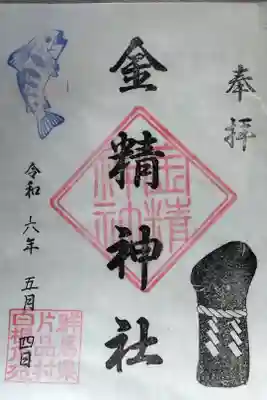 奉拝
金精神社
金精
神社
令和六年五月四日
群馬県
片品村